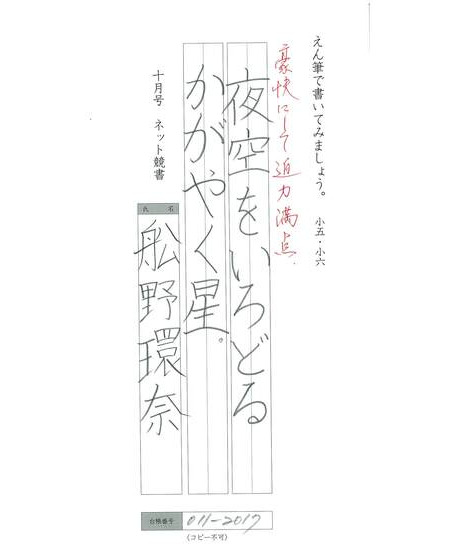 えん筆で書いてみましょう。 小五・小六
豪快にして迫力満点.
夜空をいろどる
かがやく星。
十月号 ネット競書
氏名
舩野環奈
台帳番号 011-2017
(コピー不可)